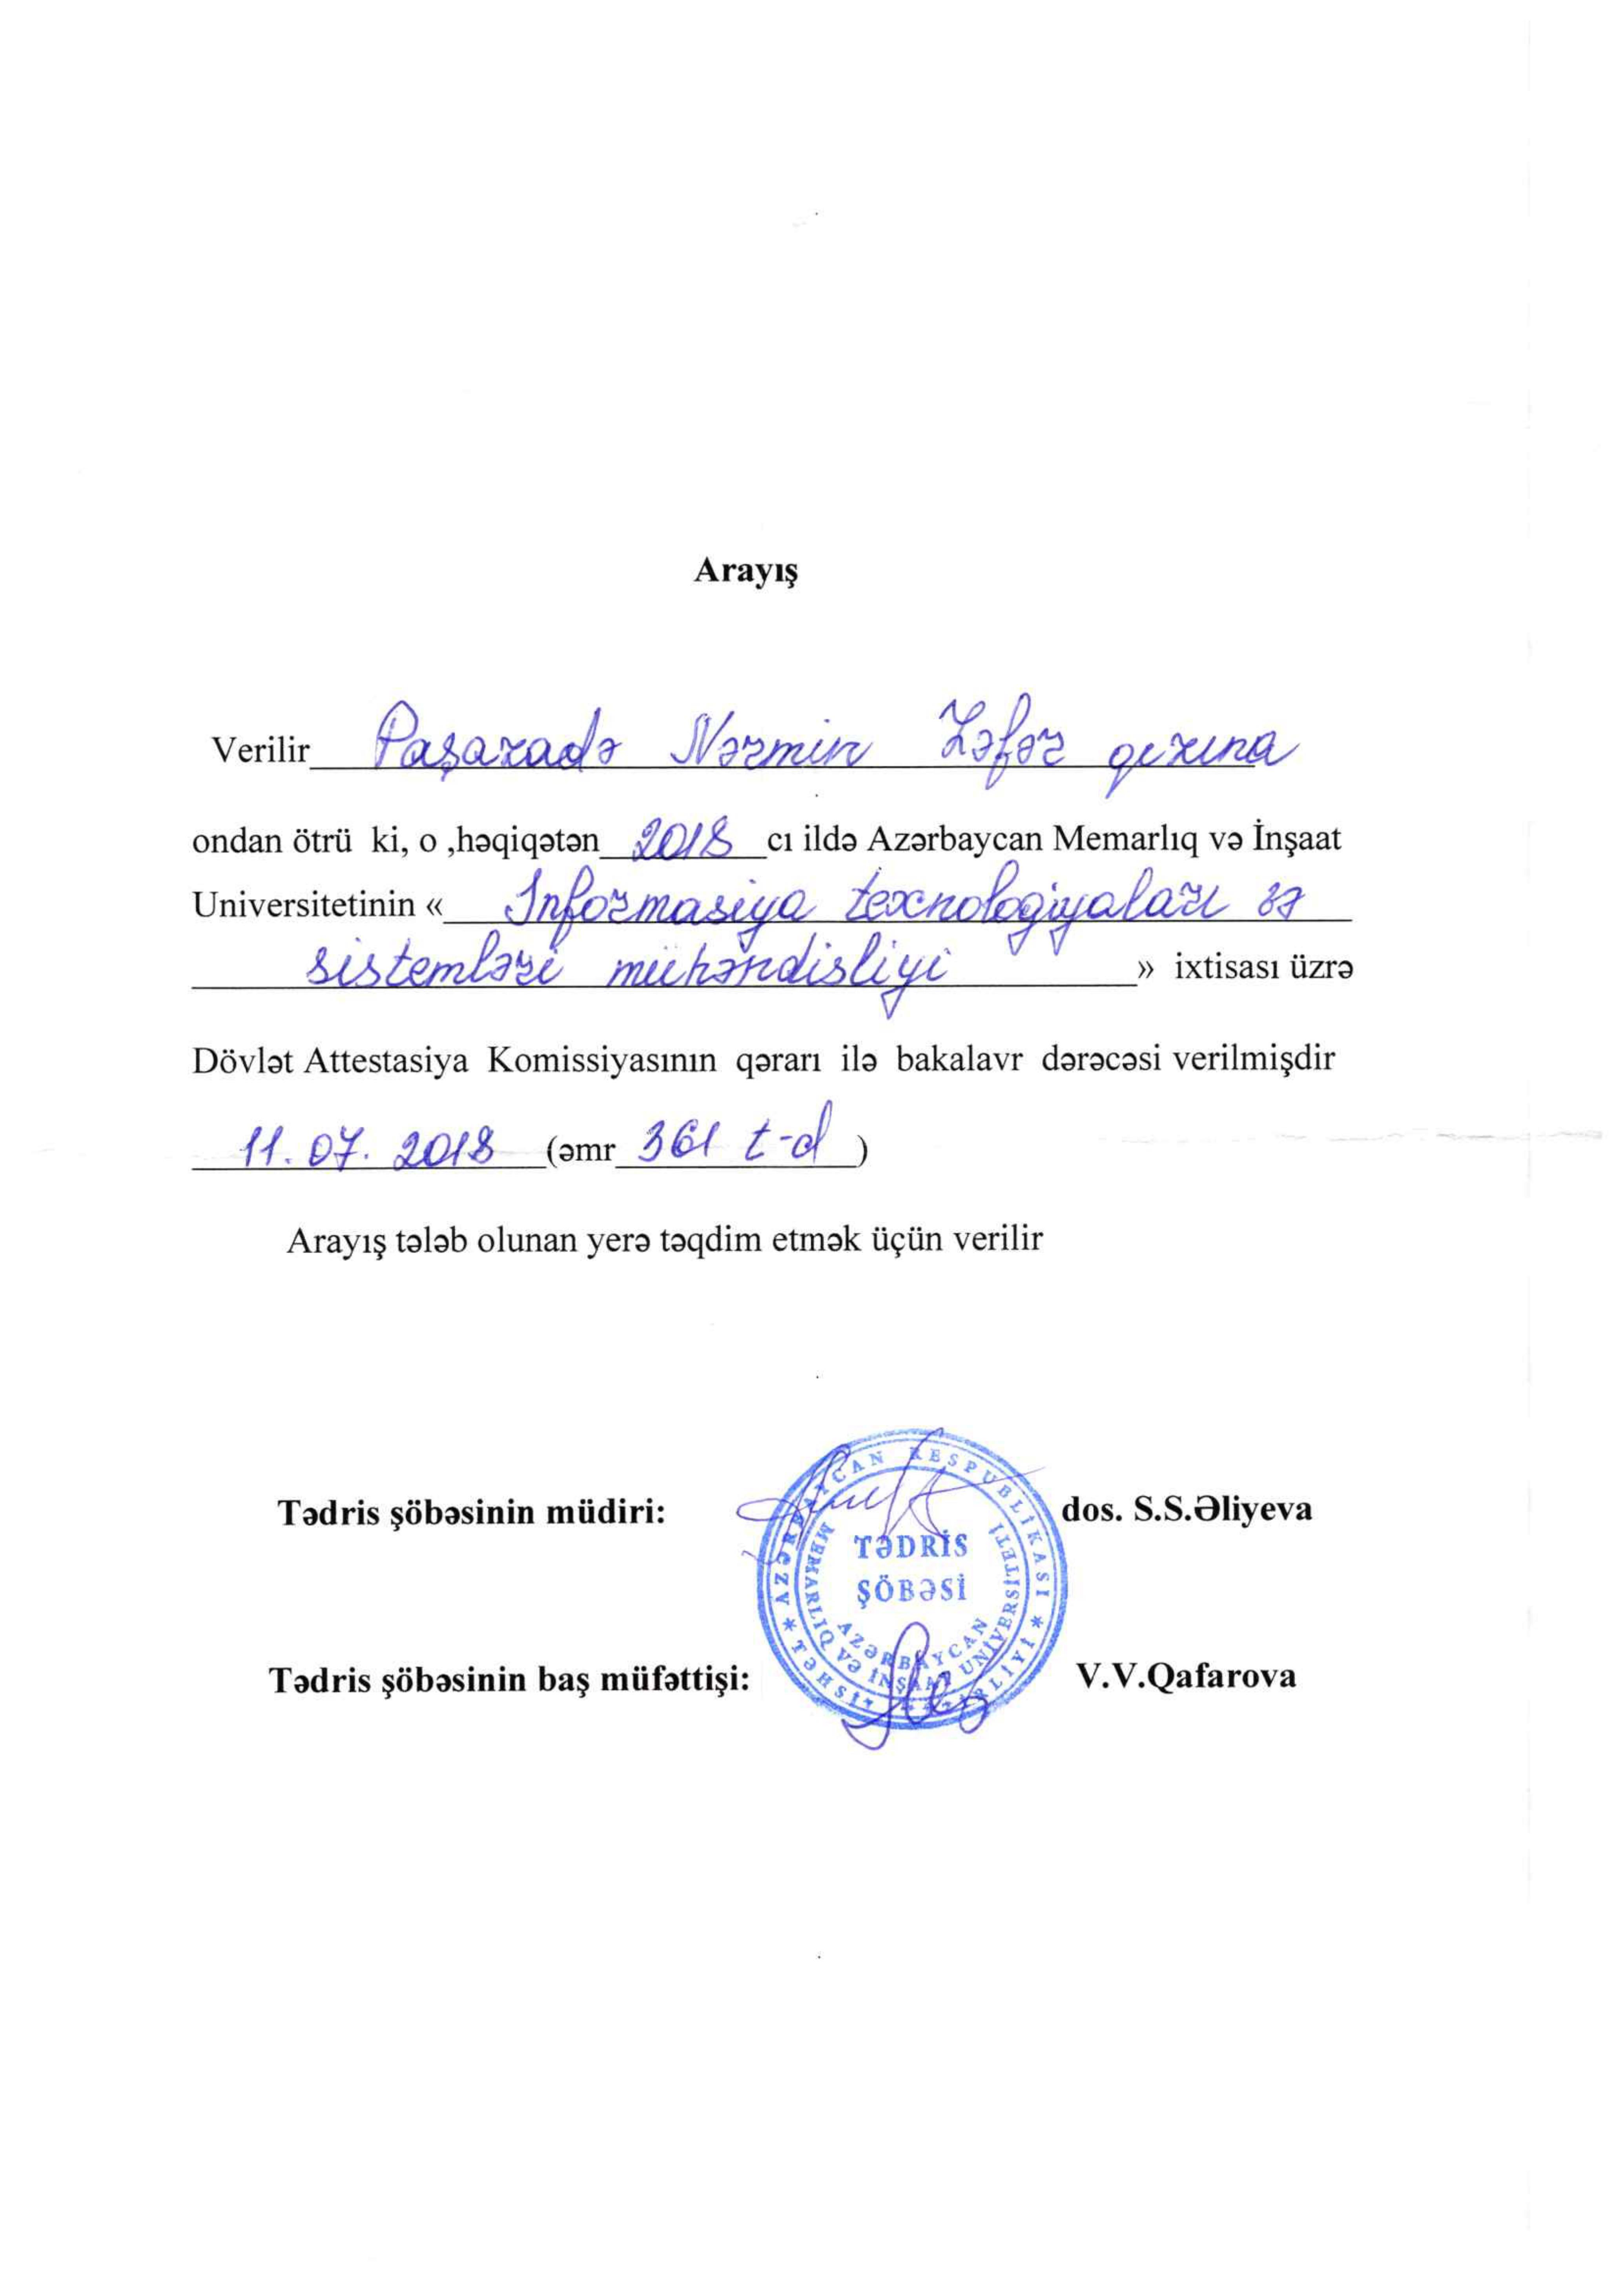 Arayış
Verilir Paşazadə Nərmin Zəfər qızına
ondan ötrü ki, o ,həqiqətən 2018 cı ildə Azərbaycan Memarlıq və İnşaat
Universitetinin « İnformasiya texnologiyaları və
sistemləri mühəndisliyi » ixtisası üzrə
Dövlət Attestasiya Komissiyasının qərarı ilə bakalavr dərəcəsi verilmişdir
11.07.2018 (əmr 361 t-d )
Arayış tələb olunan yerə təqdim etmək üçün verilir
Tədris şöbəsinin müdiri: dos. S.S.Əliyeva
Tədris şöbəsinin baş müfəttişi: V.V.Qafarova
AZƏRBAYCAN RESPUBLİKASI * TƏHSİL NAZİRLİYİ *
AZƏRBAYCAN MEMARLIQ VƏ İNŞAAT UNİVERSİTETİ
TƏDRİS
ŞÖBƏSİ